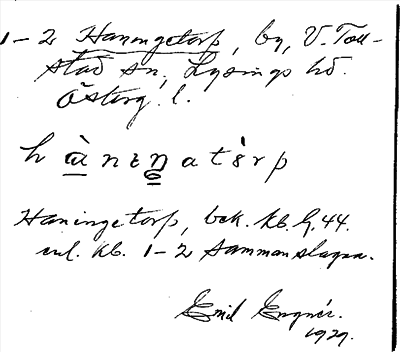 1-2 Haningetorp, by, V. Toll-
stad sn, Lysings hd.
Österg. l.
hànɛŋatɛ̀rp
Haningetorp, bek. Kb. h. 44.
enl. Kb. 1-2 Sammanslagna.
Emil Engnér.
1929.